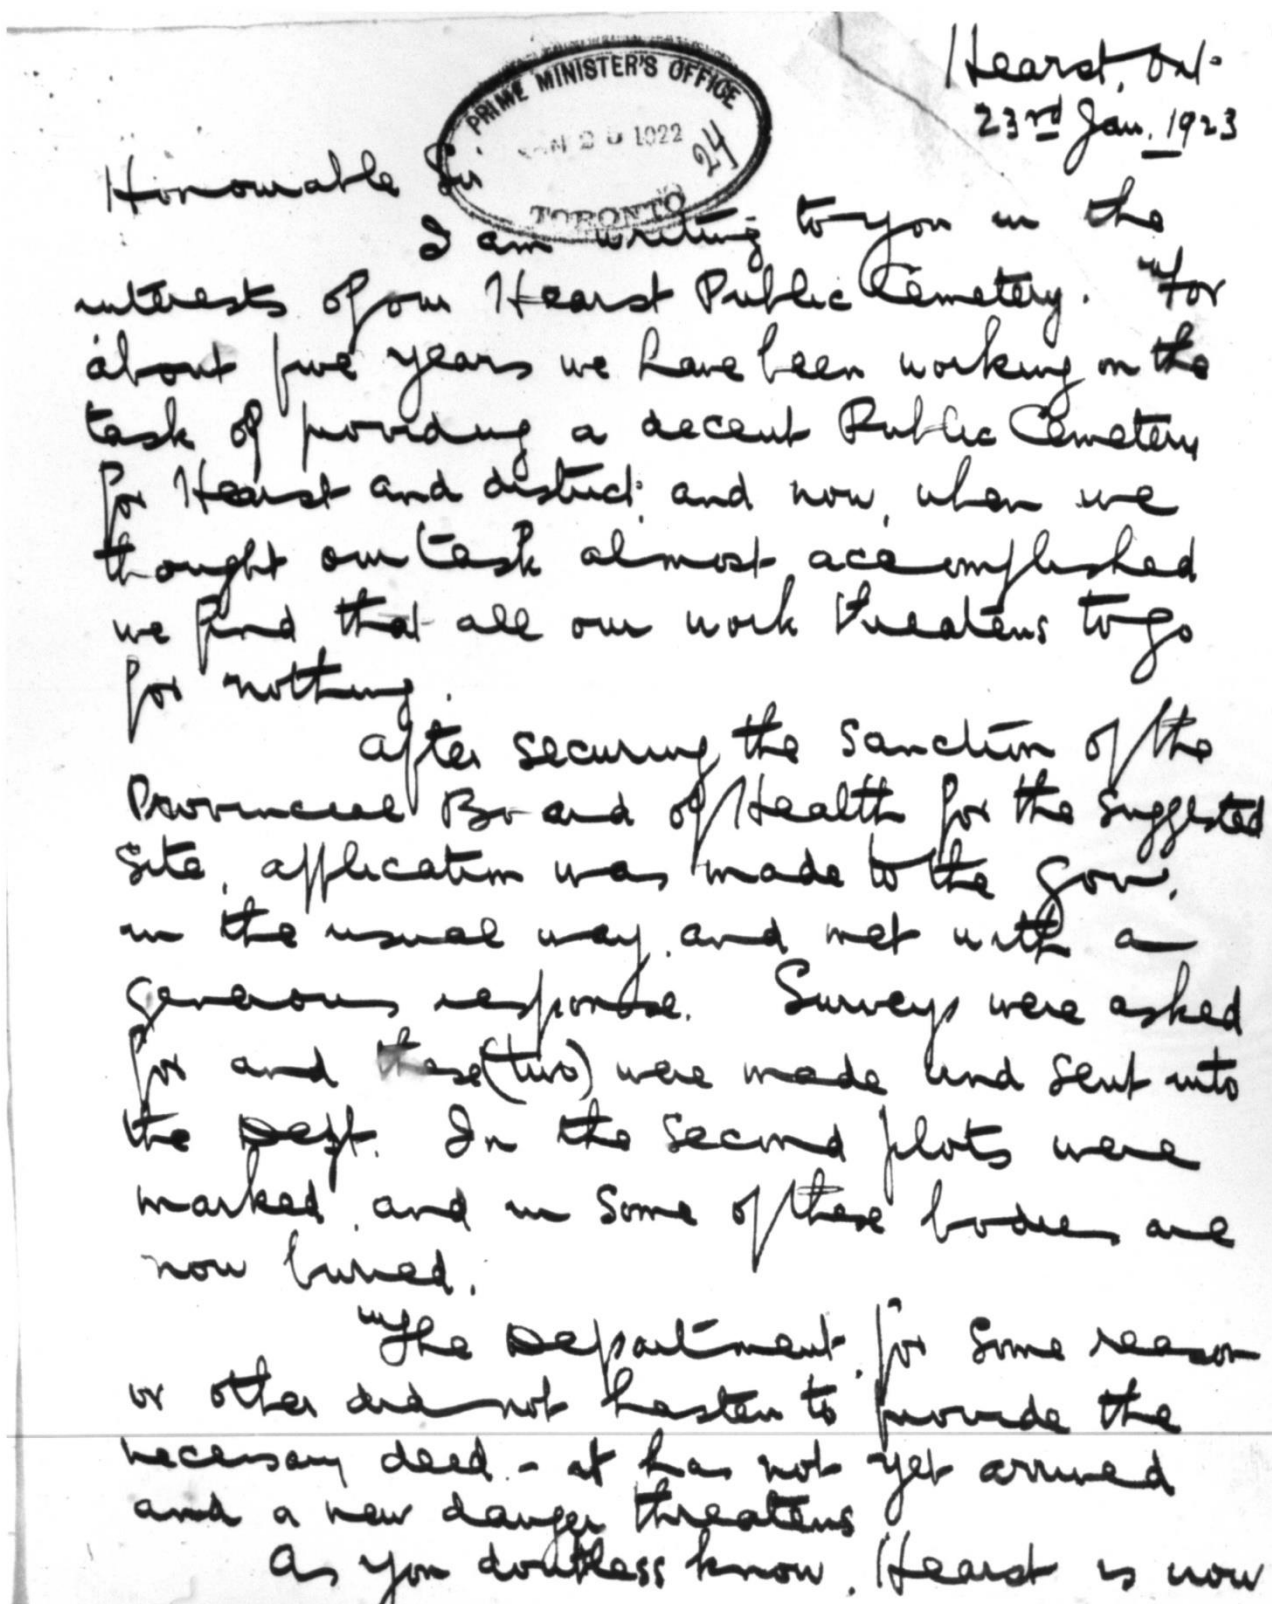 Hearst, Ont.
23rd Jan. 1923
PRIME MINISTER'S OFFICE
JAN 25 1922
24
TORONTO
Honourable Sir
I am writing to you in the
interests of our Hearst Public Cemetery. For
about five years we have been working on the
task of providing a decent Public Cemetery
for Hearst and district and now, when we
thought our task almost accomplished
we find that all our work threatens to go
for nothing.
After securing the sanction of the
Provincial Board of Health for the suggested
site, application was made to the Gov.
in the usual way, and met with a
generous response. Surveys were asked
for and these (two) were made and sent into
the Dept. In the second plots were
marked, and in some of these bodies are
now buried.
The Department, for some reason
or other did not hasten to provide the
necessary deed - it has not yet arrived
and a new danger threatens
As you doubtless know, Hearst is now